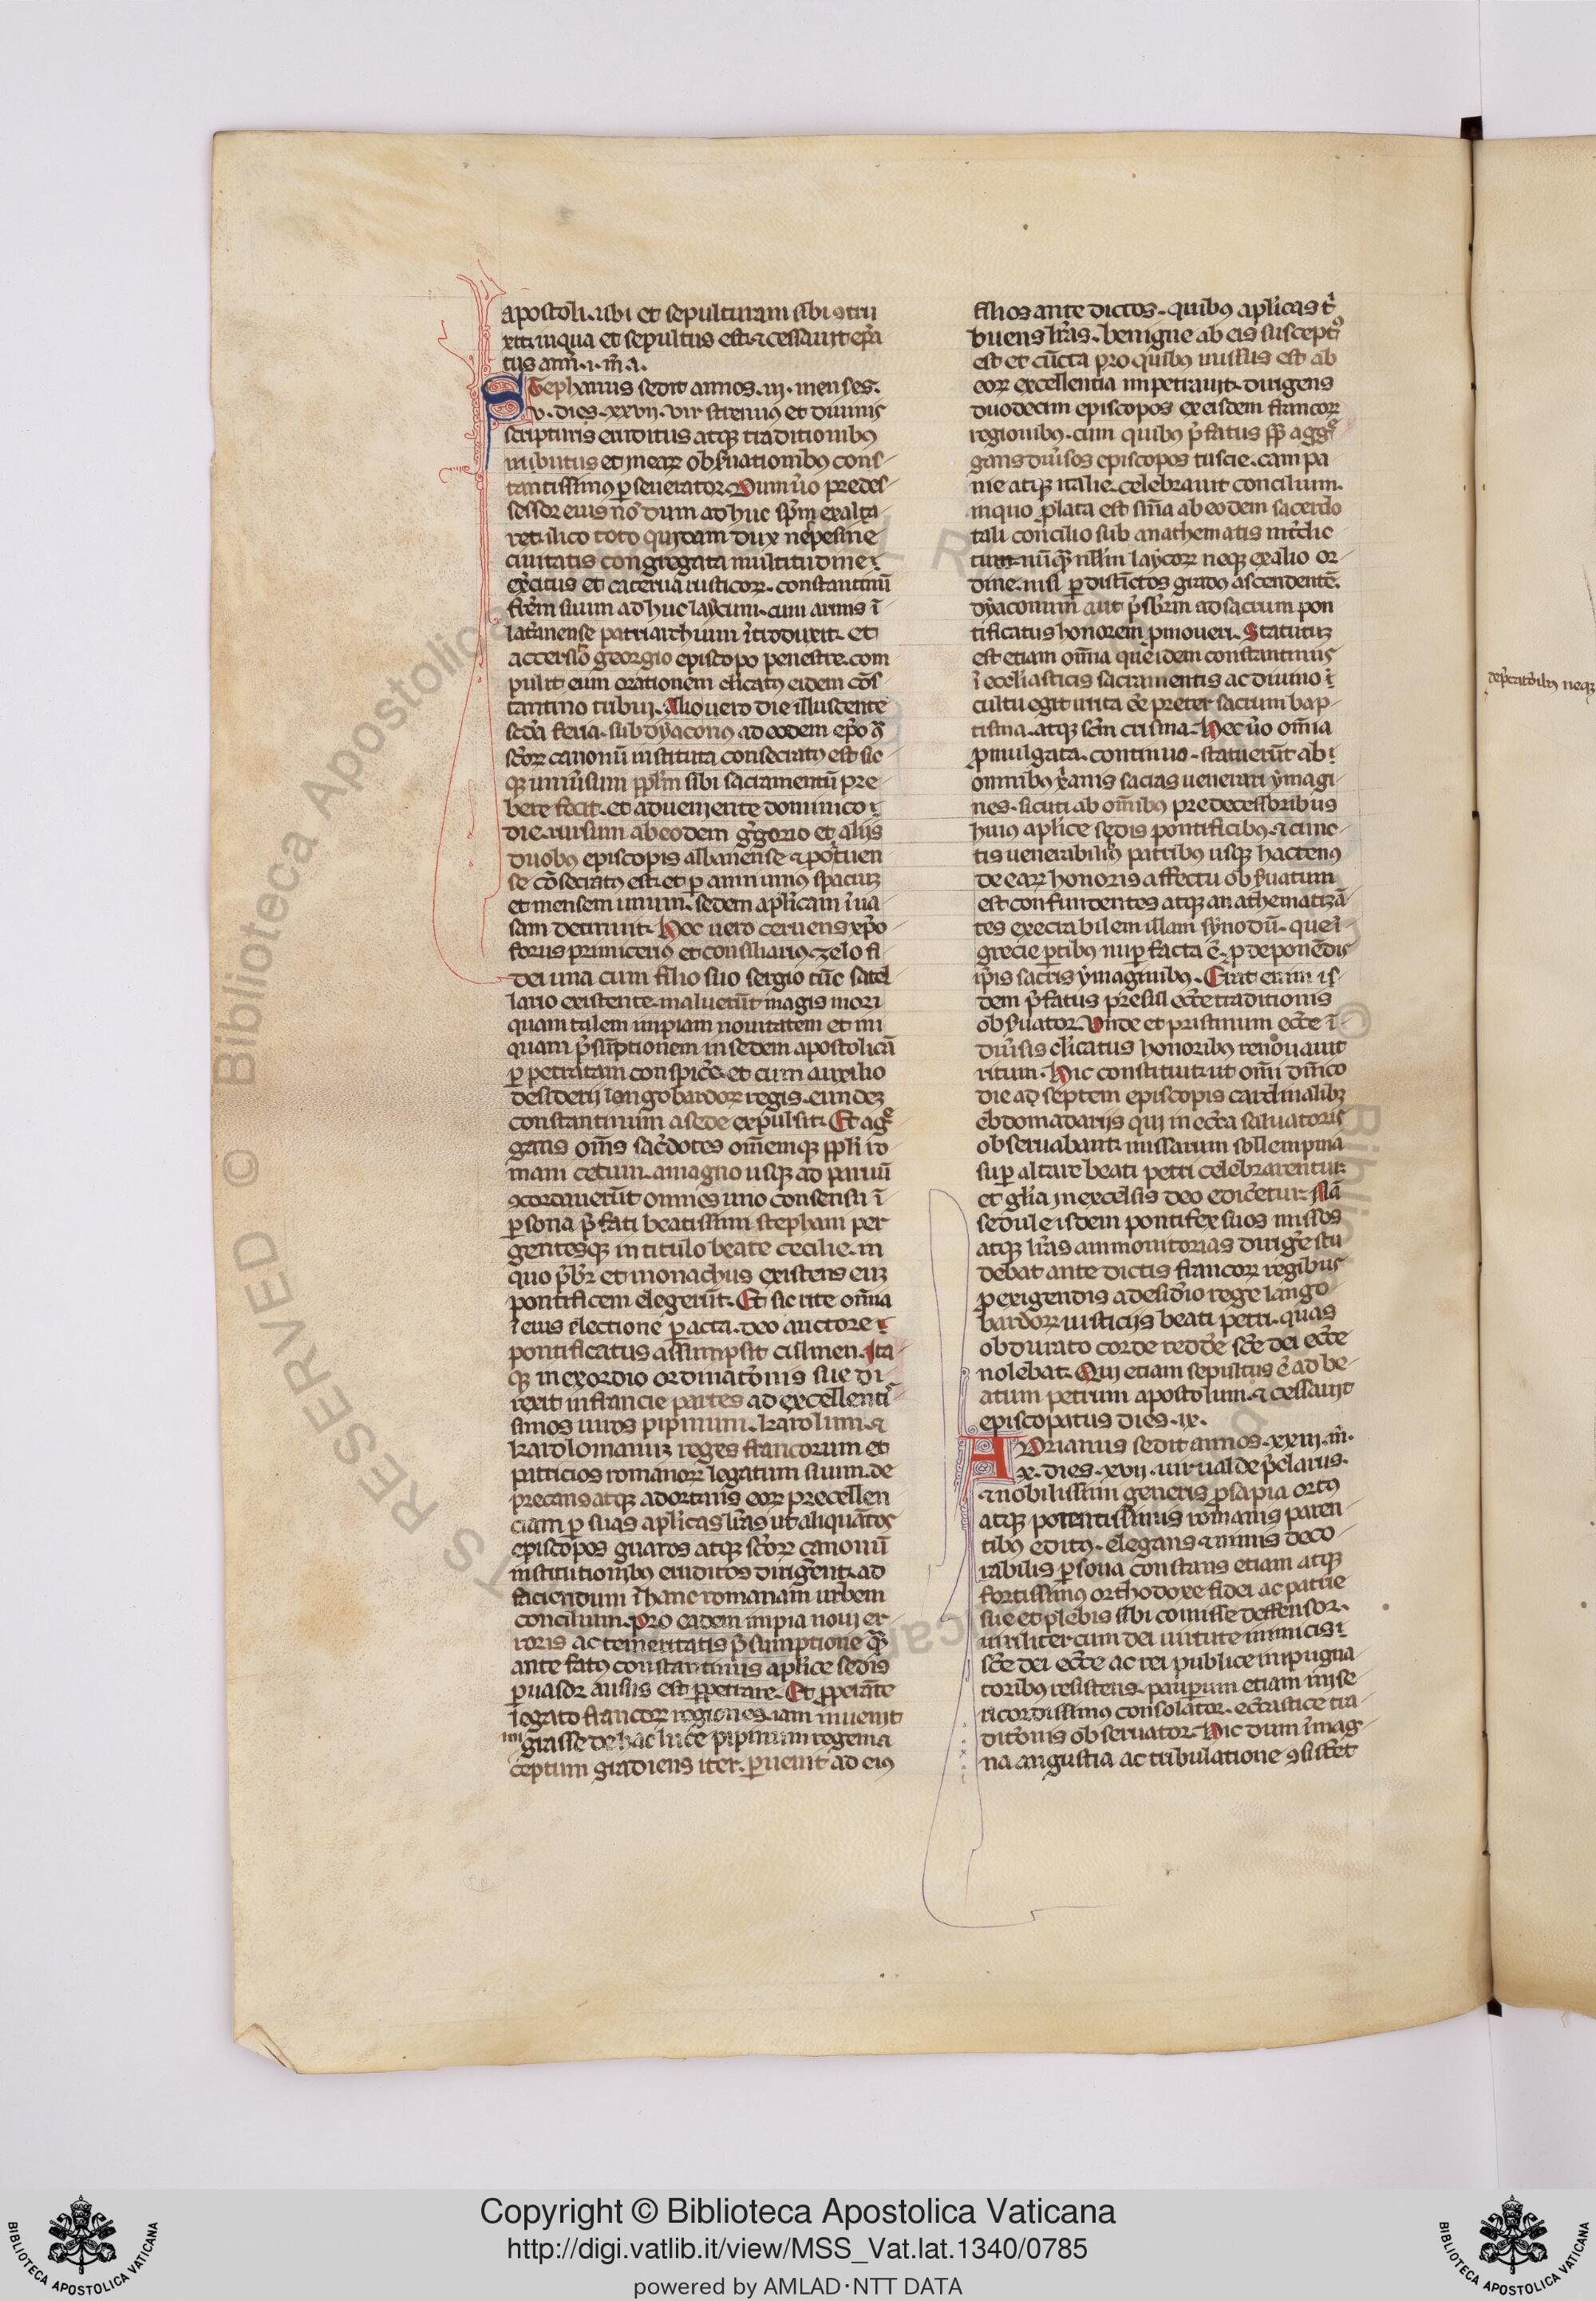 apostoli. ubi et sepulturam sibi ꝯtru
xit. in qua et sepultus est. ⁊ cessauit ep̄a
tus ann̄. i. m̄. i.
Stephanus sedit annos. iij. menses.
v. dies. xxvij. vir strenuus et diuinis
scripturis eruditus atqꝫ traditionibus
imbutus et in eaꝝ obẜuationibꝫ cons-
tantissimꝰ ꝑseuerator. Dum ůo predes-
sessor eius nō dum ad huc sp̄m exalta
ret. ilico toto quidam dux nepesine
ciuitatis congregata multitudine
exercitus et caterua rusticoꝝ. constantinū
fr̄em suum ad huc laycum. cum armis ī
lat̾anense patriarchium ītroduxit. et
accersito georgio episcopo penestre. com
pulit eum orationem cl̾icatꝰ eidem cōs
tantino tribui. Alio uero die illuscente
scd̾a feria. subdyaconꝰ ad eodem ep̄o ꝯᷓ
sc̄oꝝ canonū instituta consecratꝰ est sic
qꝫ uniuersum pp̄lm sibi sacramentū pre
bere fecit. et adueniente dominico
die. rursum ab eodem g̾gorio et alijs
duobꝰ episcopis albanense ⁊ portuen
se cōsecratꝰ est. et ꝑ anni unius spacium
et mensem unum. sedem apl̾icam īua
sam detinuit. Hoc uero cernens xp̄o
forus primicerius et consiliarius. zelo fi
dei una cum filio suo sergio tūc satel
lario existente. maluerūt magis mori
quam talem impiam nouitatem et ini
quam p̄sūptionem in sedem apostolicā
ꝑpetratam conspic̾e. et cum auxilio
desiderij longobardoꝝ regis. eundeꝫ
constantinum a sede expulsit. Et agg̾
gans om̄s sac̾dotes om̄emqꝫ pp̄l̾i ro
manı cetum. a magno usqꝫ ad paruū
ꝯcordauerūt omnes uno consensu ī
ꝑsona p̄fati beatissimi stephani per
gentesqꝫ in titulo beate cecilie. in
quo p̄br̄ et monachus existens eum
pontificem elegerūt. Et sic rite om̄ia
ī eius electione ꝑacta. deo auctore
pontificatus assumpsit culmen. Ita
qꝫ in exordio ordinat̾onis sue di
rexit in francie partes ad excellenti
simos uiros pipinum. karolum. ⁊
karolomanuꝫ reges francorum et
patricios romanoꝝ legatum suum. de
precans atqꝫ adortans eoꝝ precellen
ciam ꝑ suas apl̾icas lr̄as ut aliquātos
episcopos gnaros atqꝫ sc̄oꝝ canonū
institutionibꝰ eruditos dirigent. ad
faciendum ī hanc romanam urbem
concilium. pro eadem impia noui er-
roris ac temeritatis p̄sumptione qᷓ
ante fatꝰ constantinus apl̾ice sedis
ꝑuasor ausus est ꝑpetrare. Et ꝓperāte
legato francoꝝ regiones. iam inuenit
migrasse de hac luce pipinum regem. a
ceptum gradiens iter. ꝑuenit ad eius
filios ante dictos. quibꝰ apl̾icas t̾i
buens lr̄as. benigne ab eis susceptꝰ
est et cūcta pro quibꝰ missus est ab
eoꝝ excellentia impetrauit. dirigens
duodecim episcopos ex eisdem francoꝝ
regionibꝰ. cum quibꝰ p̄fatus sp̄ agg̾e
gans diu̾sos episcopos tuscie. campa
nie atqꝫ italie. celebrauit concilium.
in quo ꝓlata est sn̄ia ab eodem sacerdo
tali concilio sub anathematis int̾dic
tum nūqᷓ nllm̄ laycoꝝ neqꝫ ex alio or-
dine. nisi ꝑ distīctos gradus ascendentē.
dyaconum aut p̄sbrm̄ ad sacrum pon
tificatus honorem ꝓmoueri. Statutuꝫ
est etiam om̄ia que idem constantinus
ī eccl̾iasticis sacramentis ac diuino
cultu egit irrita ēe preter sacrum bap-
tisma. atqꝫ sc̄m crisma. Hec ůo om̄ia
ꝓmulgata. continuo. statuerūt ab
omnibꝰ x̄anis sacras uenerari ymagi
nes. sicuti ab om̄ibꝰ predecessoribus
huius apl̾ice sedis pontificibꝰ. ⁊ cunc-
tis uenerabilibꝰ patribꝰ usqꝫ hactenꝰ
de eaꝝ honoris affectu obẜuatum
est confundentes atqꝫ anathematizā
tes execrabilem illam synodū. que ī
grecie ꝑtibus nuꝑ facta ē. ꝓ deponēdis
ip̄is sacris ymaginibꝰ. Erat enim is-
dem p̄fatus presul ecc̄e traditionis
obẜuator. Vnde et pristinum ecc̄e ī-
diu̾sis cl̾icatus honoribꝰ renouauit
ritum. Hic constituit. ut om̄i dn̄ico
die ad septem episcopis cardinalibꝫ
ebdomadarijs qui in ecc̄a saluatoris
obseruabant. missarum sollempnia
suꝑ altare beati petri celebrarentur.
et gl̾ia in excelsis deo edic̾etur. Nā
sedule isdem pontifex suos missos
atqꝫ lr̄as ammonitorias dirig̾e stu
debat ante dictis francoꝝ regibus
ꝓ exigendis a desid̾io rege lango
bardoꝝ iusticijs beati petri. quas
obdurato corde redd̾e sc̄e dei ecc̄e
nolebat. Qui etiam sepultus ē ad be-
atum petrum apostolum. ⁊ cessauit
episcopatus dies. ix.
Adrianus sedit annos. xxiij. m̄.
x. dies. xvij. uir ualde p̄clarus.
⁊ nobilissimi generis ꝓsapia ortꝰ
atqꝫ potentissimis romanis paren-
tibꝰ editꝰ. elegans ⁊ nimis deco-
rabilis ꝑsona constans etiam atqꝫ
fortissimus orthodoxe fidei ac patrie
sue et plebis sibi comisse deffensor.
uiriliter cum dei uirtute inimicis
sc̄e dei ecc̄e ac rei publice impugna
toribꝰ resistens. pauꝑum etiam mise
ricordissimus consolator. ecc̄iastice tra-
dit̾onis obseruator. Hic dum ī mag-
na angustia ac tribulatione ꝯsisset
© Biblioteca Apostolica
Copyright © Biblioteca Apostolica Vaticana
http://digi.vatlib.it/view/MSS_Vat.lat.1340/0785
powered by AMLAD·NTT DATA
BIBLIOTECA APOSTOLICA VATICANA
BIBLIOTECA APOSTOLICA VATICANA